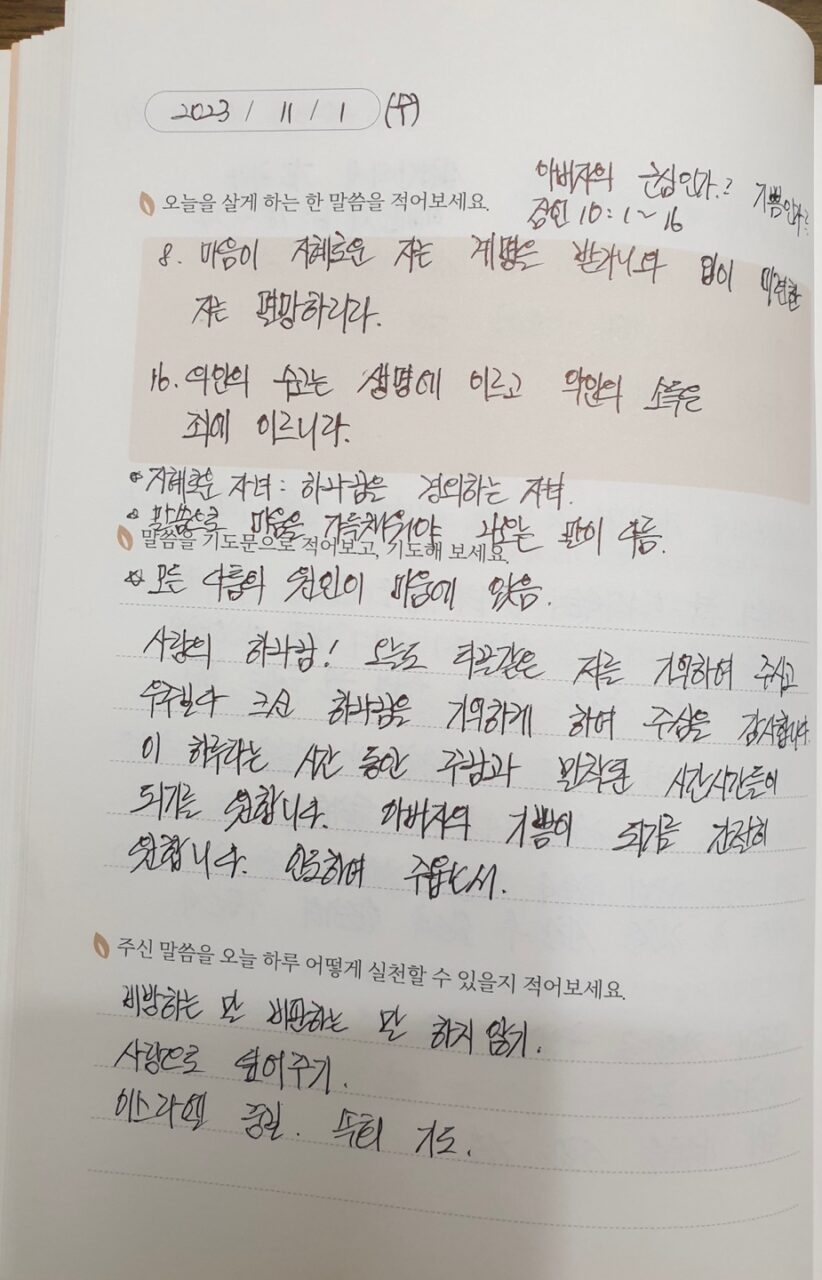 2023 / 11 / 1 (수)
아버지의 근심인가? 기쁨인가?
오늘을 살게 하는 한 말씀을 적어보세요.
잠언 10:1~16
8. 마음이 지혜로운 자는 계명을 받거니와 입이 미련한
자는 멸망하리라.
16. 의인의 수고는 생명에 이르고 악인의 소득은
죄에 이르니라.
지혜로운 자녀: 하나님을 경외하는 자녀.
말씀으로 마음을 가득채워야 나오는 말이 다름.
말씀을 기도문으로 적어보고, 기도해 보세요.
모든 다툼의 원인이 마음에 있음.
사랑의 하나님! 오늘도 티끌같은 저를 기억하여 주시고
우주보다 크신 하나님을 기억하게 하여 주심을 감사합니다.
이 하루라는 시간 동안 주님과 밀착된 시간시간들이
되기를 원합니다. 아버지의 기쁨이 되기를 간절히
원합니다. 인도하여 주옵소서.
주신 말씀을 오늘 하루 어떻게 실천할 수 있을지 적어보세요.
비방하는 말 비판하는 말 하지 않기.
사랑으로 덮어주기.
이스라엘 기도.